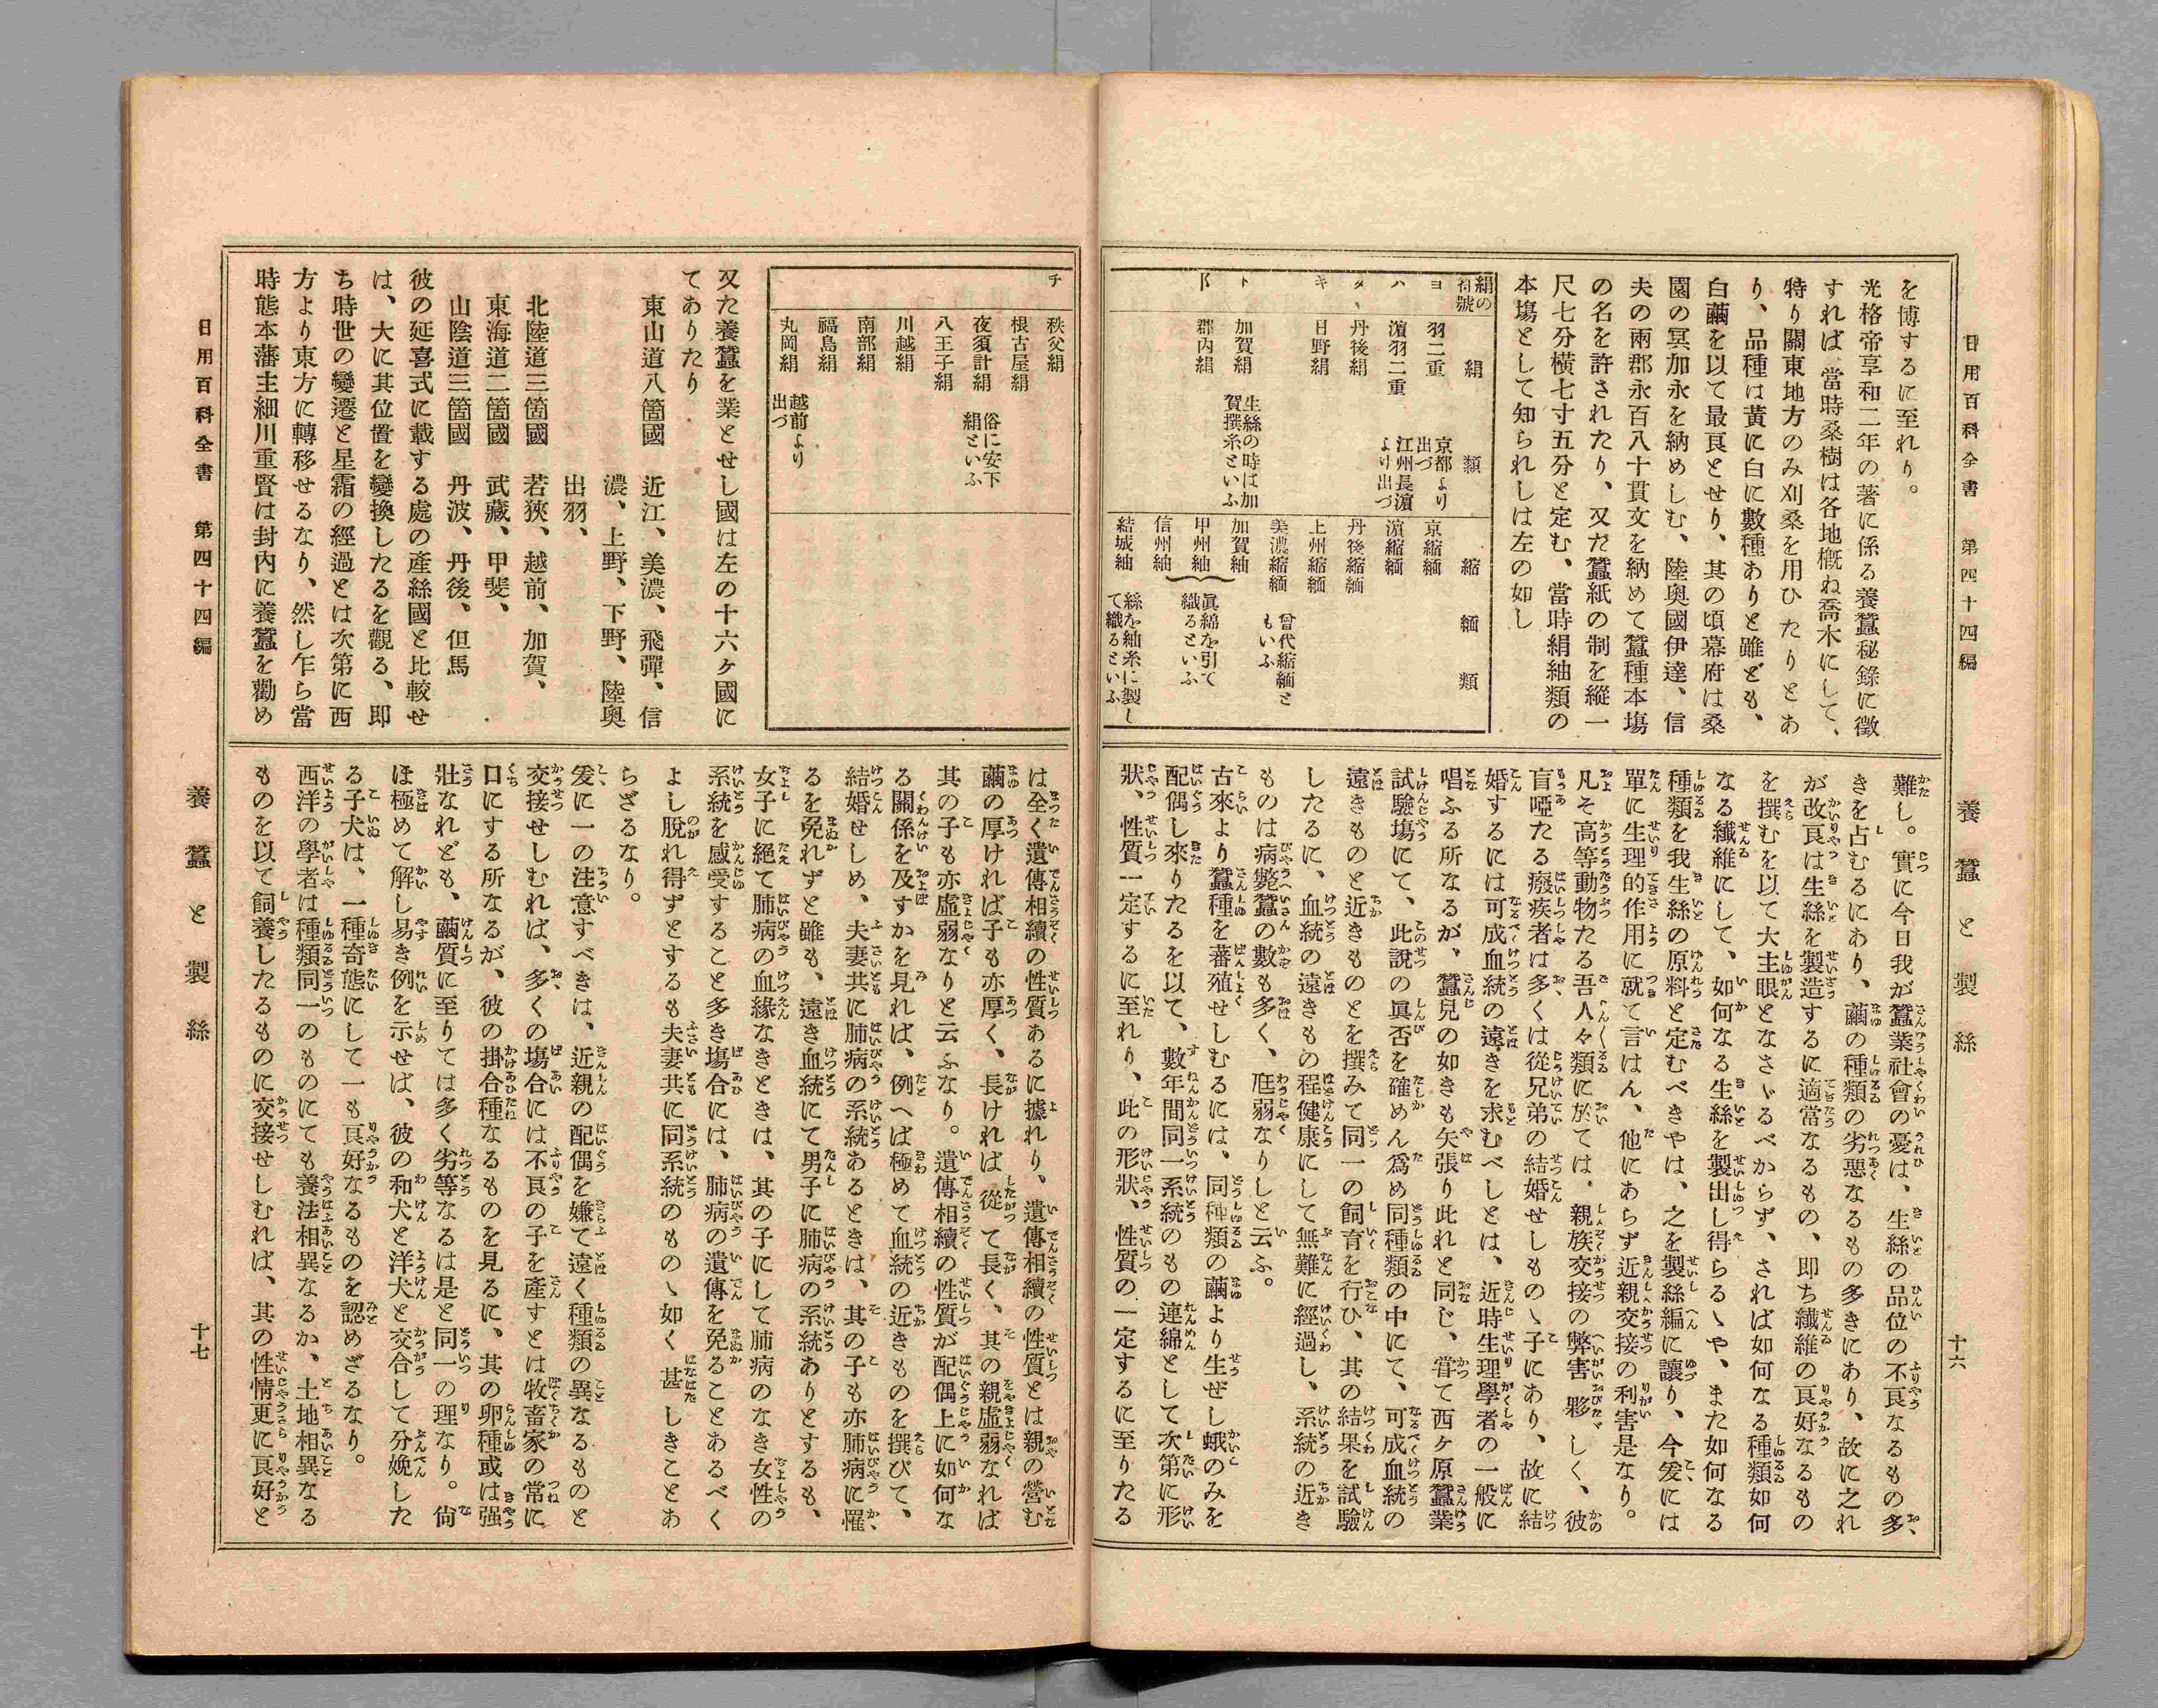 日用百科全書　第四十四編
養蠶と製絲
十六
を博するに至れり。
光格帝享和二年の著に係る養蠶秘錄に徵
すれば、當時桑樹は各地槪ね喬木にして、
特り關東地方のみ刈桑を用ひたりとあ
り、品種は黃に白に數種ありと雖ども、
白繭を以て最良とせり、其の頃幕府は桑
園の冥加永を納めしむ、陸奧國伊達、信
夫の兩郡永百八十貫文を納めて蠶種本塲
の名を許されたり、又た蠶紙の制を縱一
尺七分橫七寸五分と定む、當時絹紬類の
本塲として知られしは左の如し
絹の符號　絹類　縮緬類
ヨ　羽二重　京都より出づ　京縮緬
ハ　濵羽二重　江州長濵より出づ　濵縮緬
タ、　丹後絹　丹後縮緬
キ　日野絹　上州縮緬
美濃縮緬　曾代縮緬ともいふ
ト　加賀絹　生絲の時は加賀撰糸といふ　加賀紬
郡內絹　甲州紬
信州紬　眞綿を引て織るといふ
結城紬　絲を紬糸に製して織るといふ
難し。實に今日我が蠶業社會の憂は、生絲の品位の不良なるもの多、
きを占むるにあり、繭の種類の劣惡なるもの多きにあり、故に之れ
が改良は生絲を製造するに適當なるもの、即ち纖維の良好なるもの
を撰むを以て大主眼となさゞるべからず、されば如何なる種類如何
なる纖維にして、如何なる生絲を製出し得らるゝや、また如何なる
種類を我生絲の原料と定むべきやは、之を製絲編に讓り、今爰には
單に生理的作用に就て言はん、他にあらず近親交接の利害是なり。
凡そ高等動物たる吾人々類に於ては、親族交接の弊害夥しく、彼
盲啞たる癈疾者は多くは從兄弟の結婚せしものゝ子にあり、故に結
婚するには可成血統の遠きを求むべしとは、近時生理學者の一般に
唱ふる所なるが、蠶兒の如きも矢張り此れと同じ、甞て西ヶ原蠶業
試驗塲にて、此說の眞否を確めん爲め同種類の中にて、可成血統の
遠きものと近きものとを撰みて同一の飼育を行ひ、其の結果を試驗
したるに、血統の遠きもの程健康にして無難に經過し、系統の近き
ものは病斃蠶の數も多く、尫弱なりしと云ふ。
古來より蠶種を蕃殖せしむるには、同種類の繭より生ぜし蛾のみを
配偶し來りたるを以て、數年間同一系統のもの連綿として次第に形
狀、性質一定するに至れり、此の形狀、性質の一定するに至りたる
チ　秩父絹
根古屋絹
夜須計絹　俗に安下絹といふ
八王子絹
川越絹
南部絹
福島絹
丸岡絹　越前より出づ
又た養蠶を業とせし國は左の十六ヶ國に
てありたり
東山道八箇國　近江、美濃、飛彈、信
濃、上野、下野、陸奧
出羽、
北陸道三箇國　若狹、越前、加賀、
東海道二箇國　武藏、甲斐、
山陰道三箇國　丹波、丹後、但馬
彼の延喜式に載する處の產絲國と比較せ
は、大に其位置を變換したるを觀る、即
ち時世の變遷と星霜の經過とは次第に西
方より東方に轉移せるなり、然し乍ら當
時態本藩主細川重賢は封內に養蠶を勸め
は全く遺傳相續の性質あるに據れり、遺傳相續の性質とは親の營む
繭の厚ければ子も亦厚く、長ければ從て長く、其の親虛弱なれば
其の子も亦虛弱なりと云ふなり。遺傳相續の性質が配偶上に如何な
る關係を及すかを見れば、例へば極めて血統の近きものを撰びて、
結婚せしめ、夫妻共に肺病の系統あるときは、其の子も亦肺病に罹、
るを免れずと雖も、遠き血統にて男子に肺病の系統ありとするも、
女子に絕て肺病の血緣なきときは、其の子にして肺病のなき女性の
系統を感受すること多き塲合には、肺病の遺傳を免ることあるべく
よし脫れ得ずとするも夫妻共に同系統のものゝ如く甚しきことあ
らざるなり。
爰に一の注意すべきは、近親の配偶を嫌て遠く種類の異なるものと
交接せしむれば、多くの塲合には不良の子を產すとは牧畜家の常に
口にする所なるが、彼の掛合種なるものを見るに、其の卵種或は强
壯なれども、繭質に至りては多く劣等なるは是と同一の理なり。尙
ほ極めて解し易き例を示せば、彼の和犬と洋犬と交合して分娩した
る子犬は、一種奇態にして一も良好なるものを認めざるなり。
西洋の學者は種類同一のものにても養法相異なるか、土地相異なる
ものを以て飼養したるものに交接せしむれば、其の性情更に良好と
日用百科全書　第四十四編
養蠶と製絲
十七